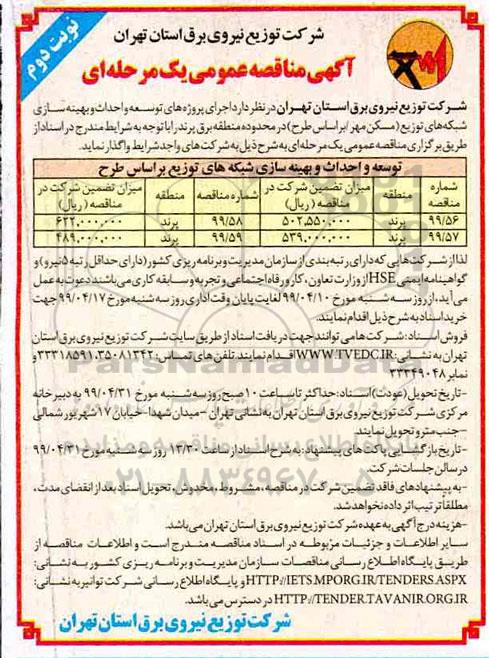 نوبت دوم
شرکت توزیع نیروی برق استان تهران
آگهی مناقصه عمومی یک مرحله‌ای
شرکت توزیع نیروی برق استان تهران در نظر دارد اجرای پروژه‌های توسعه و احداث و بهینه سازی
شبکه‌های توزیع (مسکن مهر/براساس طرح) در محدوده منطقه برق پرند را با توجه به شرایط مندرج در اسناد از
طریق برگزاری مناقصه عمومی یک مرحله‌ای به شرح ذیل به شرکت‌های واجد شرایط واگذار نماید.
توسعه و احداث و بهینه سازی شبکه های توزیع براساس طرح
شماره مناقصه | منطقه | میزان تضمین شرکت در مناقصه (ریال) | شماره مناقصه | منطقه | میزان تضمین شرکت در مناقصه (ریال)
۹۹/۵۶ | پرند | ۵۰۲,۵۵۰,۰۰۰ | ۹۹/۵۸ | پرند | ۶۲۲,۰۰۰,۰۰۰
۹۹/۵۷ | پرند | ۵۳۹,۰۰۰,۰۰۰ | ۹۹/۵۹ | پرند | ۴۸۹,۰۰۰,۰۰۰
لذا از شرکت‌هایی که دارای رتبه بندی از سازمان مدیریت و برنامه ریزی کشور (دارای حداقل رتبه ۵ نیرو) و
گواهینامه ایمنی HSE از وزارت تعاون، کار و رفاه اجتماعی و تجربه و سابقه کاری می‌باشند دعوت به عمل
می‌آید، از روز سه شنبه مورخ ۹۹/۰۴/۱۰ لغایت پایان وقت اداری روز سه شنبه مورخ ۹۹/۰۴/۱۷ جهت
خرید اسناد به شرح ذیل اقدام نمایند.
فروش اسناد: شرکت‌ها می توانند جهت دریافت اسناد از طریق سایت شرکت توزیع نیروی برق استان
تهران به نشانی: WWW.TVEDC.IR اقدام نمایند. تلفن های تماس: ۳۵۰۸۱۳۴۲، ۳۳۳۱۸۵۹۱ و
نمابر ۳۳۳۴۹۰۴۸
-تاریخ تحویل (عودت) اسناد: حداکثر تا ساعت ۱۰ صبح روز سه شنبه مورخ ۹۹/۰۴/۳۱ به دبیرخانه
مرکزی شرکت توزیع نیروی برق استان تهران به نشانی تهران -میدان شهدا-خیابان ۱۷ شهریور شمالی
-جنب مترو تحویل نمایند.
-تاریخ بازگشایی پاکت های پیشنهاد: به شرح اسناد از ساعت ۱۳/۳۰ روز سه شنبه مورخ ۹۹/۰۴/۳۱
در سالن جلسات شرکت.
-به پیشنهادهای فاقد تضمین شرکت در مناقصه، مشروط، مخدوش، تحویل اسناد بعد از انقضای مدت،
مطلقا ترتیب اثر داده نخواهد شد.
-هزینه درج آگهی به عهده شرکت توزیع نیروی برق استان تهران می‌باشد.
سایر اطلاعات و جزئیات مربوطه در اسناد مناقصه مندرج است و اطلاعات مناقصه از
طریق پایگاه اطلاع رسانی مناقصات سازمان مدیریت و برنامه ریزی کشور به نشانی:
HTTP://IETS.MPORG.IR/TENDERS.ASPX و پایگاه اطلاع رسانی شرکت توانیر به نشانی:
HTTP://TENDER.TAVANIR.ORG.IR در دسترس می باشد.
شرکت توزیع نیروی برق استان تهران
ParsNamadData
پایگاه اطلاع رسانی مناقصه و مزایده
۰۲۱-۸۸۳۴۹۶۷۰-۵